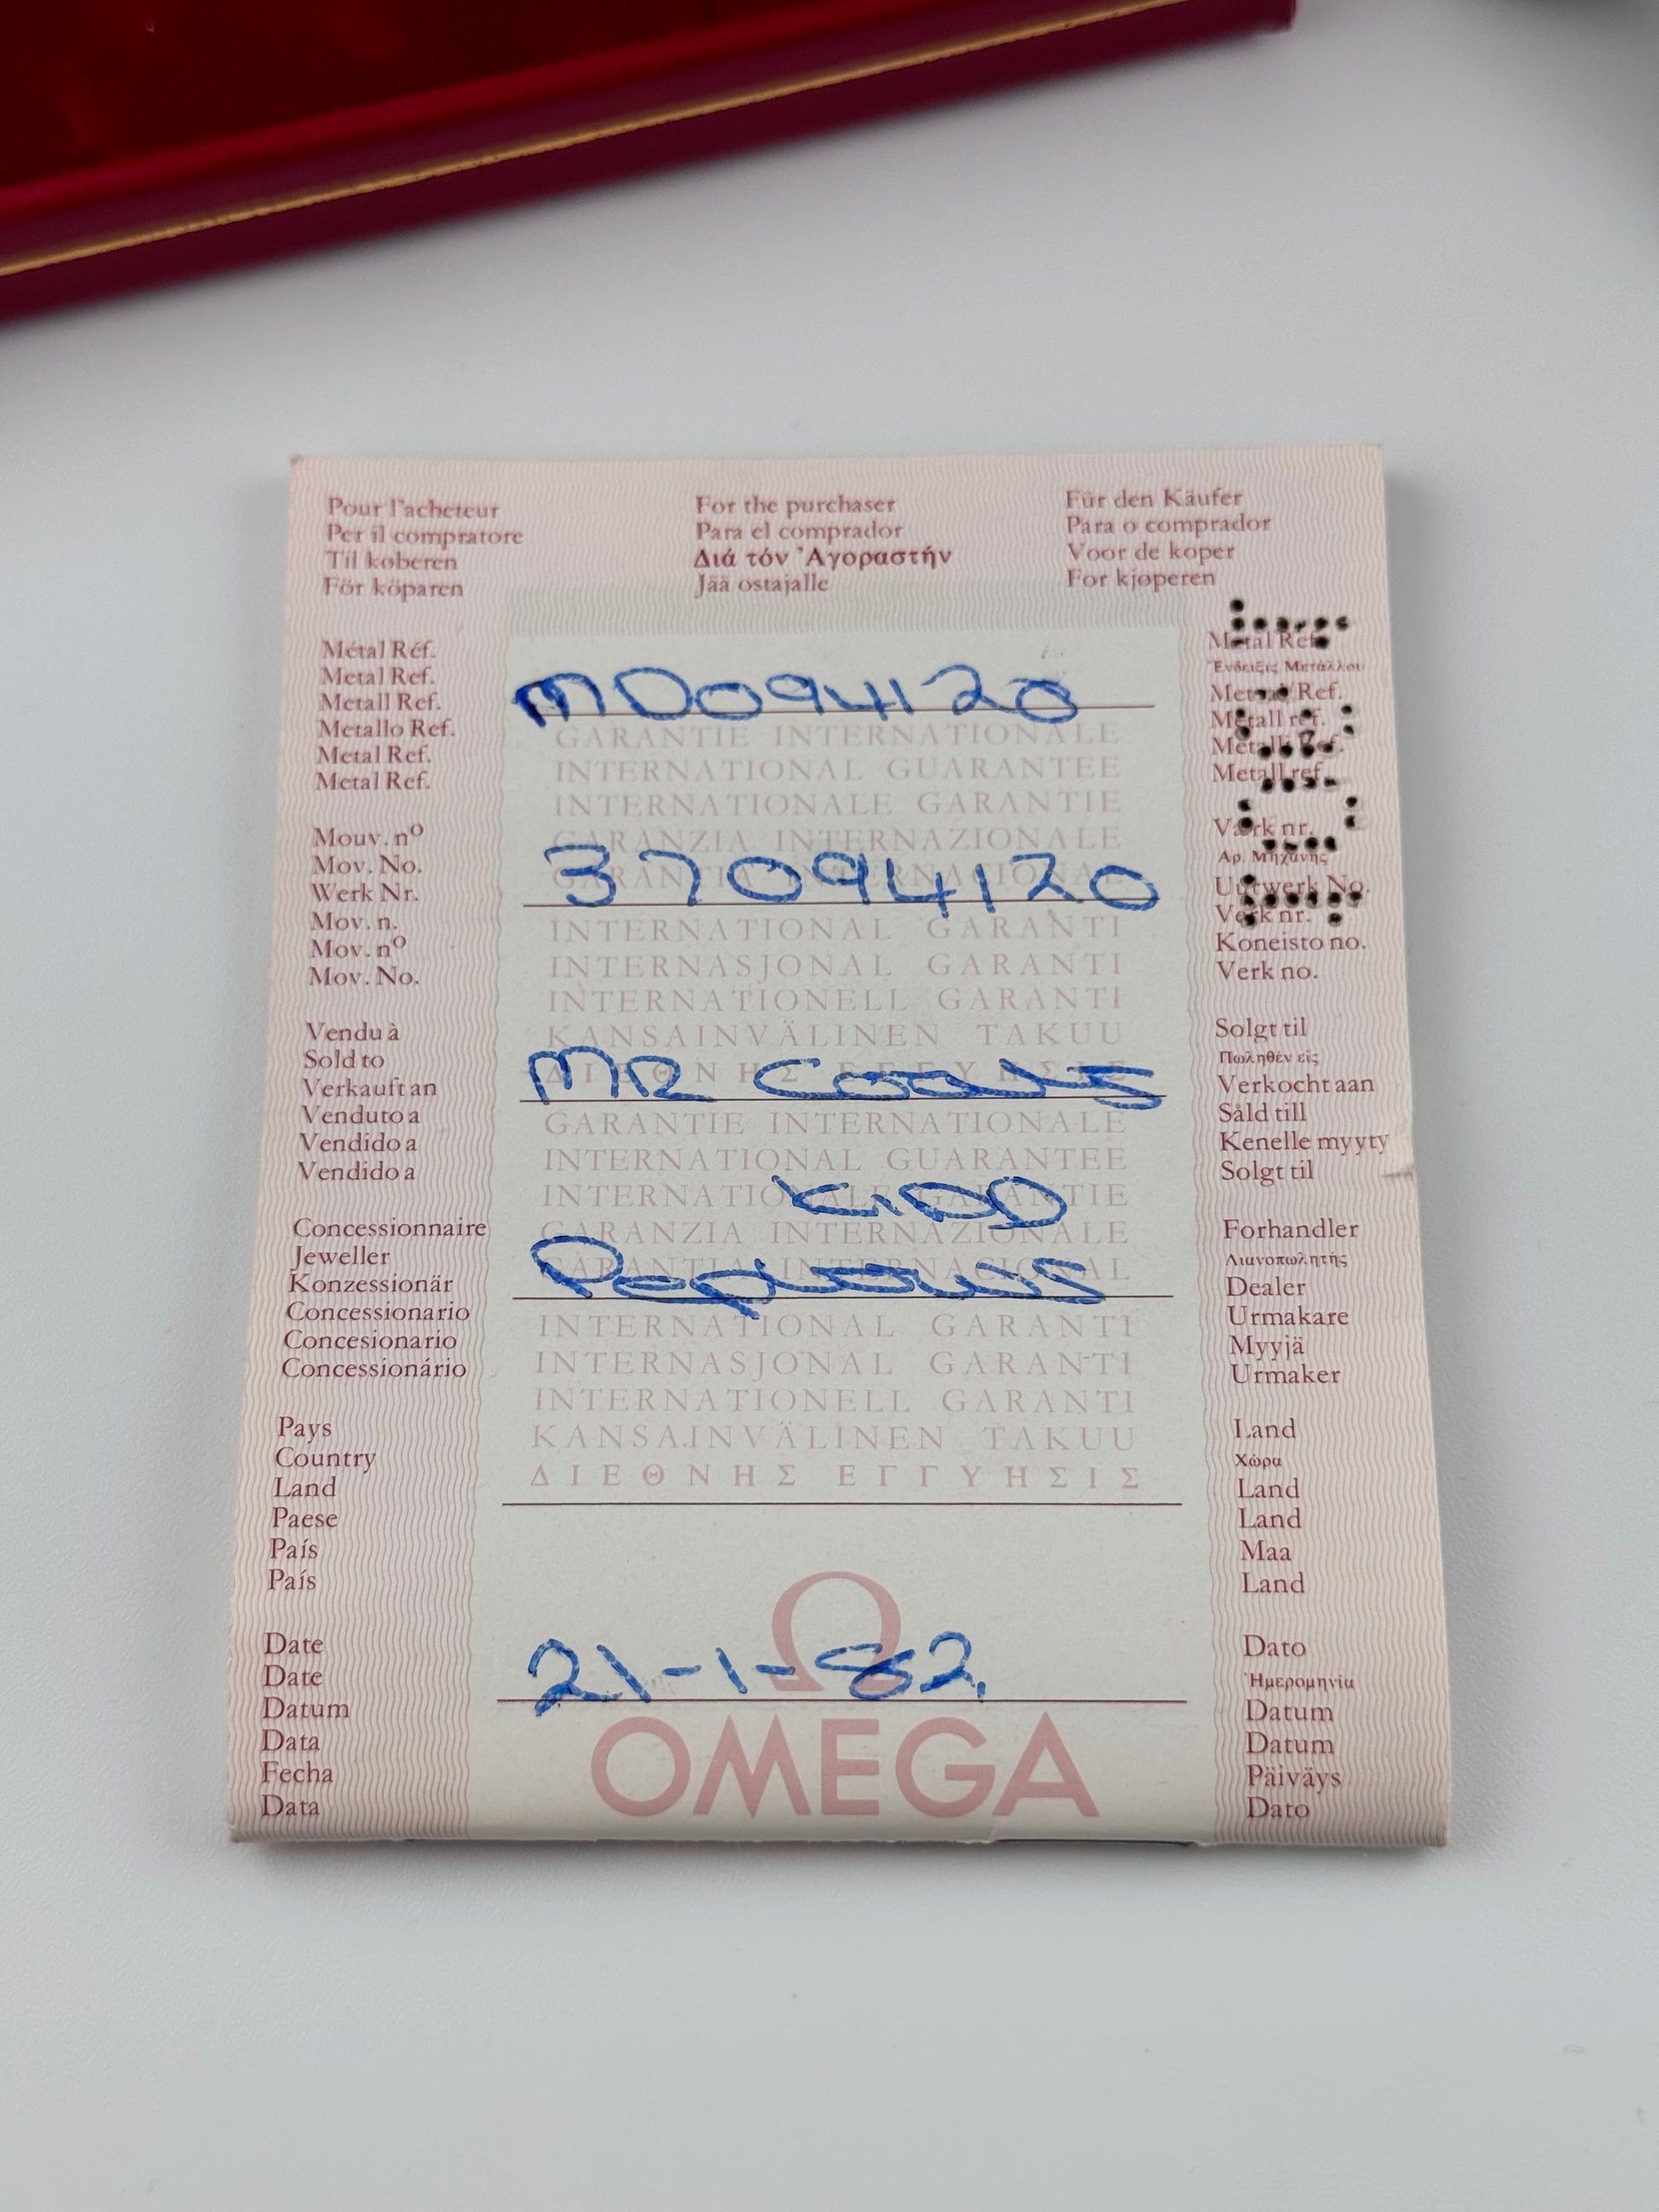 Pour l'acheteur For the purchaser Für den Käufer
Per il compratore Para el comprador Para o comprador
Til køberen Διά τόν Ἀγοραστήν Voor de koper
För köparen Jää ostajalle For kjøperen
Métal Réf. Metal Ref.
Metal Ref. Ἔνδειξις Μετάλλου
Metall Ref. MD094120 Metaal Ref.
Metallo Ref. GARANTIE INTERNATIONALE Metall ref.
Metal Ref. INTERNATIONAL GUARANTEE Metalli Ref.
Metal Ref. INTERNATIONALE GARANTIE Metall ref.
Mouv. nº GARANZIA INTERNAZIONALE Værk nr.
Mov. No. GARANTIA INTERNACIONAL Αρ. Μηχανής
Werk Nr. 37094120 Uurwerk No.
Mov. n. INTERNATIONAL GARANTI Verk nr.
Mov. nº INTERNASJONAL GARANTI Koneisto no.
Mov. No. INTERNATIONELL GARANTI Verk no.
Vendu à KANSAINVÄLINEN TAKUU Solgt til
Sold to ΔΙΕΘΝΗΣ ΕΓΓΥΗΣΙΣ Πωληθέν είς
Verkauft an MR Verkocht aan
Venduto a GARANTIE INTERNATIONALE Såld till
Vendido a INTERNATIONAL GUARANTEE Kenelle myyty
Vendido a INTERNATIONALE GARANTIE Solgt til
KIDD
Concessionnaire GARANZIA INTERNAZIONALE Forhandler
Jeweller GARANTIA INTERNACIONAL Λιανοπωλητής
Konzessionär Dealer
Concessionario INTERNATIONAL GARANTI Urmakare
Concesionario INTERNASJONAL GARANTI Myyjä
Concessionário INTERNATIONELL GARANTI Urmaker
Pays KANSAINVÄLINEN TAKUU Land
Country ΔΙΕΘΝΗΣ ΕΓΓΥΗΣΙΣ Χώρα
Land Land
Paese Land
País Maa
País Land
Ω
Date 21-1-82. Dato
Date Ἡμερομηνία
Datum Datum
Data OMEGA Datum
Fecha Päiväys
Data Dato